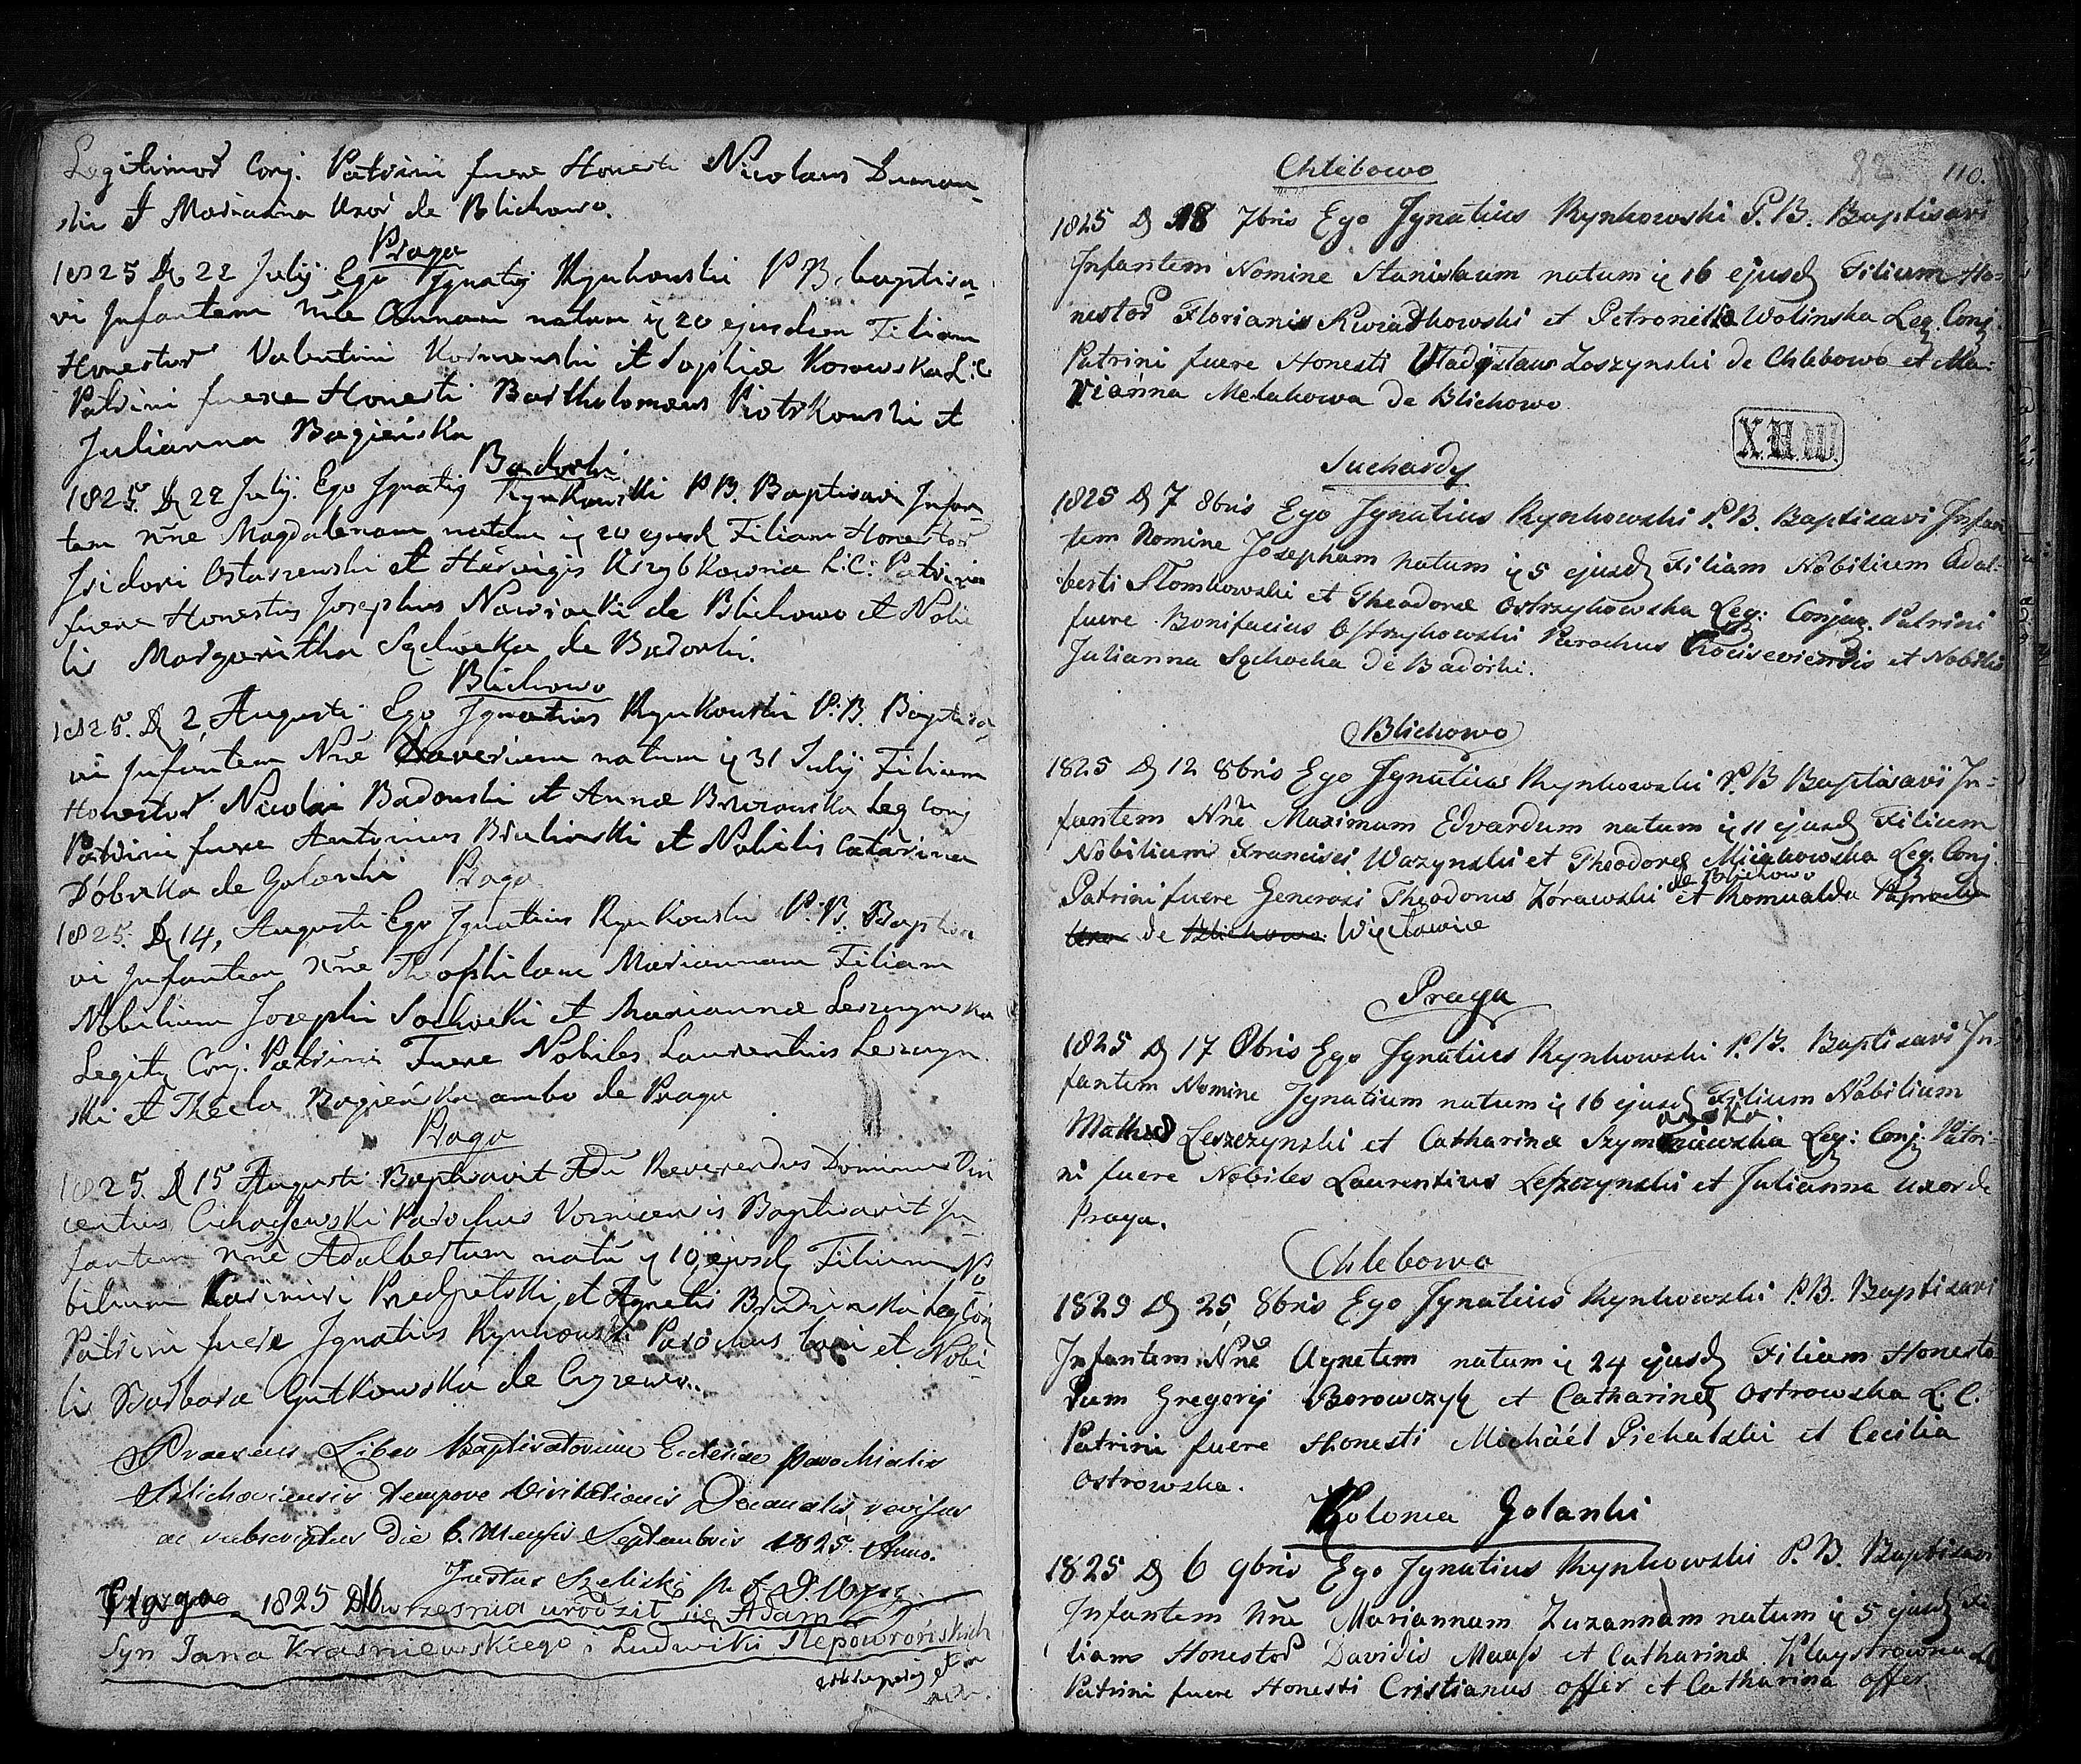 Legitimor Conj. Patrini fuere Honesti Nicolaus
ski et Marianna Uxor de Blichowo.
Praga
1825 D 22 Julij Ego Ignatig Rynkowski P B. baptisa-
vi Infantem nne Annam natam ię 20 ejusdem Filiam
Honestor Valentini et Sophiae L. C
Patrini fuere Honesti Bartholomeus Piotrkowski et
Julianna Bogieńska
Badorki
1825. D 22 Julij. Ego Ignatig Rynkowski P B. Baptisavi Infan
tem nne Magdalenam natam ię 20 ejusd Filiam Honestor
Isidori Ostaszewski et Hedvigis L. C: Patrini
fuere Honestus Josephus Nowicki de Blichowo et Nobi
lis Margaritha de Badorki.
Blichowo
1825. D 2, Augusti Ego Ignatius Rynkowski P. B. Baptisa-
vi Infantem Nne Xaverium natum ię 31 Julij Filium
Honestor Nicolai Badowski et Annae Leg Conj
Patrini fuere Antonius et Nobilis Catarina
Dóbska de Golanki
Praga
1825. D 14, Augusti Ego Ignatius Rynkowski P. B. Baptisa
vi Infantem nne Theophilam Mariannam Filiam
Nobilium Josephi Sochocki et Mariannae Leszczynska
Legitę Conj. Patrini Fuere Nobiles Laurentius Leszczyn
ski et Thecla Bogieńska ambo de Praga
Praga
1825. D 15 Augusti Baptisavit Adu Reverendus Dominus Vin
centius Parochus Baptisavit In
fantem nne Adalbertum natu ię 10 ejusdę Filium No
bilium Casimiri Przedpelski et Agnetis Leg Conj
Patrini fuere Ignatius Rynkowski Parochus loci et Nobi-
lis Barbara Gutkowska de
Praesens Liber Baptisatorum Ecclesiae parochialis
Blichoviensis tempore Visitationis Decanalis revisus
ac subscriptus Die 6. Mensis Septembris 1825. Anno.
Justus
Praga 1825 D września urodził się Adam
Syn Jana Kraśniewskiego i Ludwiki Ślepowrońskich
82 110.
Chlebowo
1825 D 18 7bris Ego Ignatius Rynkowski P. B. Baptisavi
Infantem Nomine Stanislaum natum ię 16 ejusdę Filium Ho-
nestor Floriani Kwiatkowski et Petronella Wolinska Leg. Conj.
Patrini fuere Honesti Wladislaus Loszynski de Chlebowo et Ma-
rianna Melakowa de Blichowo
Suchardy
1825 D 7 8bris Ego Ignatius Rynkowski P. B. Baptisavi Infan
tem Nomine Josepham natum ię 5 ejusdę Filiam Nobilium Adal-
berti Slomkowski et Theodorae Ostrzykowska Leg: Conjug. Patrini
fuere Bonifacius Ostrzykowski Parochus et Nobilis
Julianna Sąchocka de Badórki.
Blichowo
1825 D 12 8bris Ego Ignatius Rynkowski P. B Baptisavi In-
fantem Nne Maximum Edvardum natum ię 11 ejusdę Filium
Nobilium Francisci Wazynski et Theodorae Leg. Conj
Patrini fuere Generosi Theodorus Zórawski de Blichowo et Romualda
Uxor de Blichowo Więcławice
Praga
1825 D 17 8bris Ego Ignatius Rynkowski P. B. Baptisavi In-
fantem Nomine Ignatium natum ię 16 ejusdę Filium Nobilium
Leszczynski et Catharinae Leg: Conj: Patri-
ni fuere Nobiles Laurentius Leszczynski et Julianna uxor de
Praga.
Chlebowo
1825 D 25, 8bris Ego Ignatius Rynkowski P. B. Baptisavi
Infantem Nne Agnetem natum ię 24 ejusdę Filiam Honesto
rum Gregorij Borowczyk et Catharinae Ostrowska L. C.
Patrini fuere Honesti Michaël Piekalski et Cecilia
Ostrowska.
Kolonia Golanki
1825 D 6 9bris Ego Ignatius Rynkowski P. B. Baptisavi
Infantem Nne Mariannam Zuzannam natum ię 5 ejusdę Fi
liam Honestor Davidis Maass et Catharinae
Patrini fuere Honesti Cristianus offer et Catharina offer